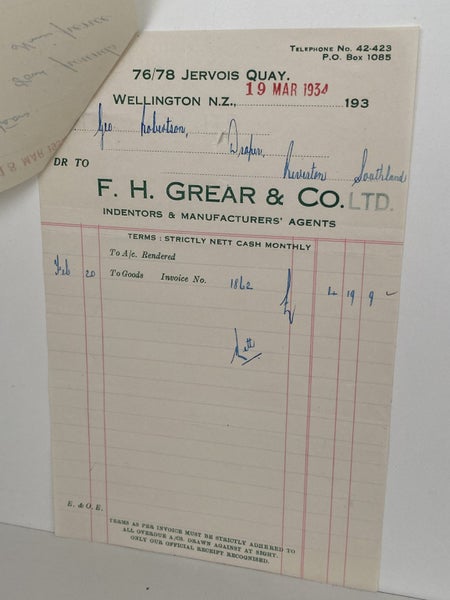 TELEPHONE NO. 42-423
P.O. BOX 1085
76/78 JERVOIS QUAY.
WELLINGTON N.Z., 19 MAR 1934 193
Geo Robertson,
Draper,
Riverton Southland
DR TO
F. H. GREAR & CO. LTD.
INDENTORS & MANUFACTURERS' AGENTS
TERMS : STRICTLY NETT CASH MONTHLY
To A/c. Rendered
Feb 20 To Goods Invoice No. 1862 £ 4 19 9
Nett
E. & O. E.
TERMS AS PER INVOICE MUST BE STRICTLY ADHERED TO
ALL OVERDUE A/CS. DRAWN AGAINST AT SIGHT.
ONLY OUR OFFICIAL RECEIPT RECOGNISED.